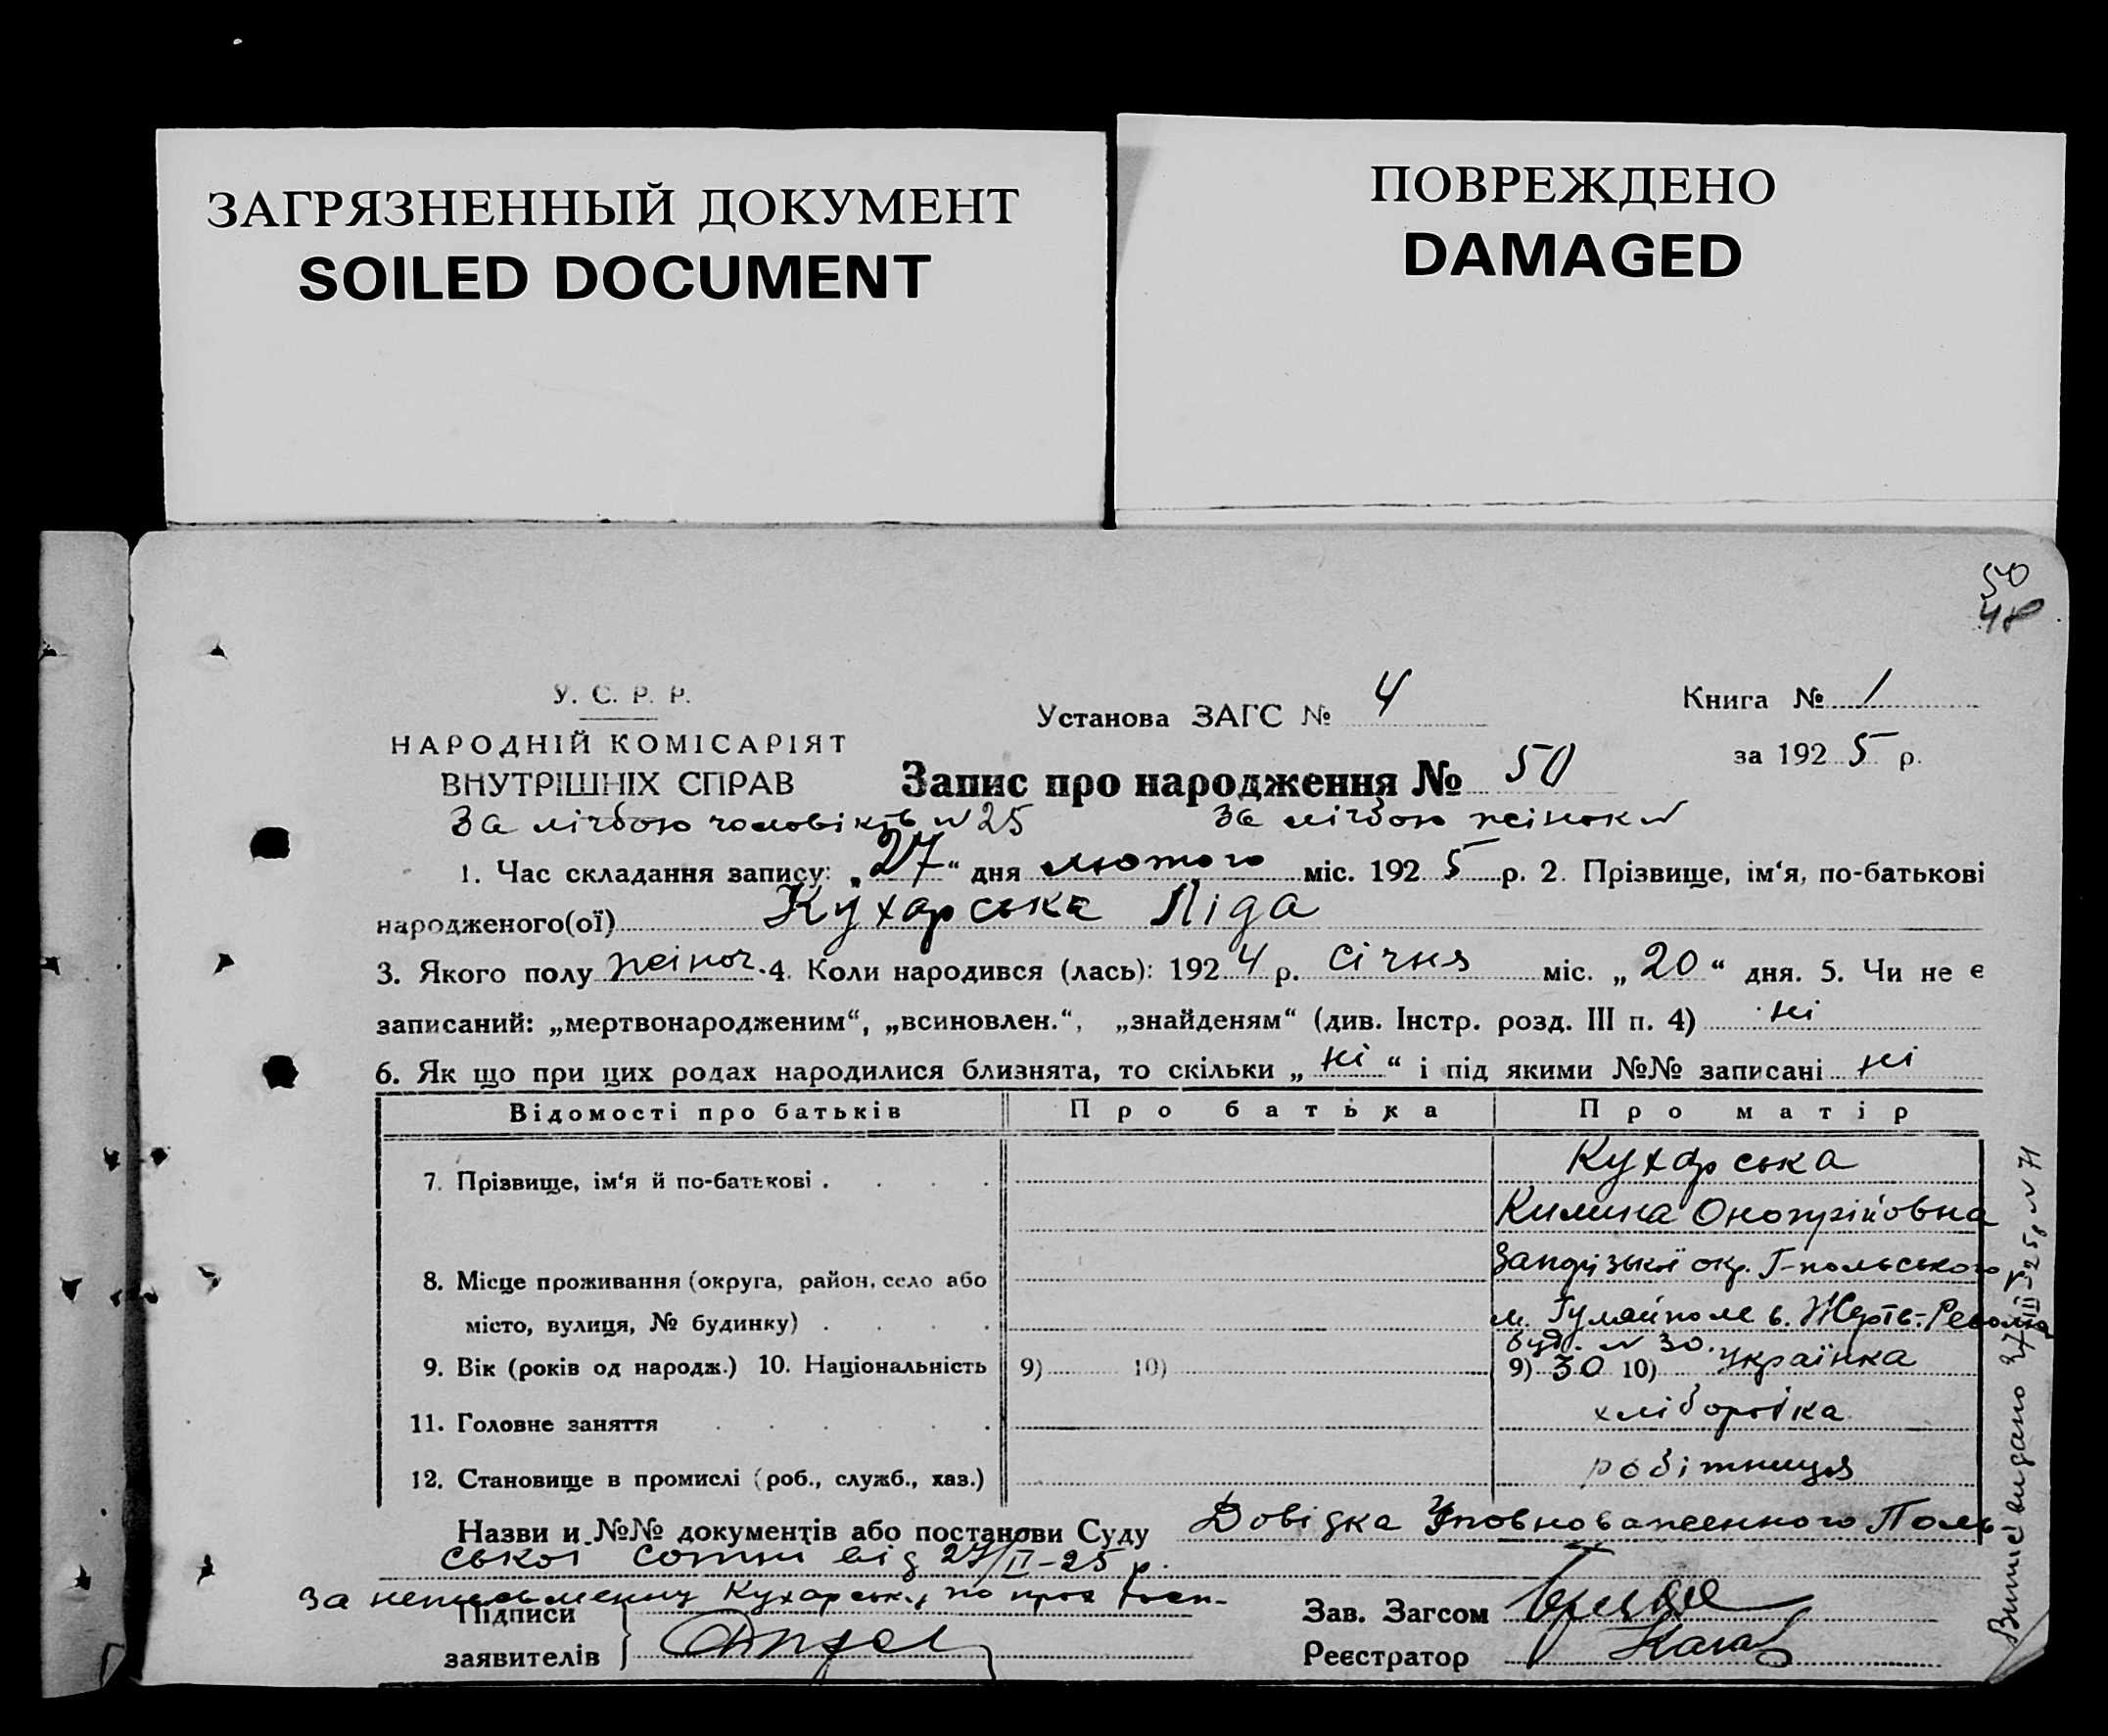 ЗАГРЯЗНЕННЫЙ ДОКУМЕНТ
SOILED DOCUMENT
ПОВРЕЖДЕНО
DAMAGED
50
48
У. С. Р. Р.
НАРОДНІЙ КОМІСАРІЯТ
ВНУТРІШНІХ СПРАВ
Установа ЗАГС № 4
Книга № 1
за 1925 р.
Запис про народження № 50
За лічбою чоловіків № 25 За лічбою жінок №
1. Час складання запису: „27“ дня лютого міс. 1925 р. 2. Прізвище, ім‘я, по-батькові
народженого(ої) Кухарська Ліда
3. Якого полу жіноч. 4. Коли народився (лась): 1924 р. січня міс. „20“ дня. 5. Чи не є
записаний: „мертвонародженим“, „всиновлен.“, „знайденям“ (див. Інстр. розд. III п. 4) ні
6. Як що при цих родах народилися близнята, то скільки „ні“ і під якими №№ записані ні
Відомості про батьків Про батька Про матір
7. Прізвище, ім‘я й по-батькові . Кухарська
Килина Онопрійовна
8. Місце проживання (округа, район, село або Запорізької окр. Г-польського
місто, вулиця, № будинку) м. Гуляйполе в. Жертв-Револю
буд. № 30.
9. Вік (років од народж.) 10. Національність 9) 10) 9) 30 10) українка
11. Головне заняття хліборобка
12. Становище в промислі (роб., служб., хаз.) робітниця
Назви и №№ документів або постанови Суду Довідка Уповноваженного Поль
ської сотни від 27/II-25 р.
За неписьменну Кухарськ., по
Підписи
заявителів
Зав. Загсом
Реєстратор
Випис видано 27/III-25р № 71